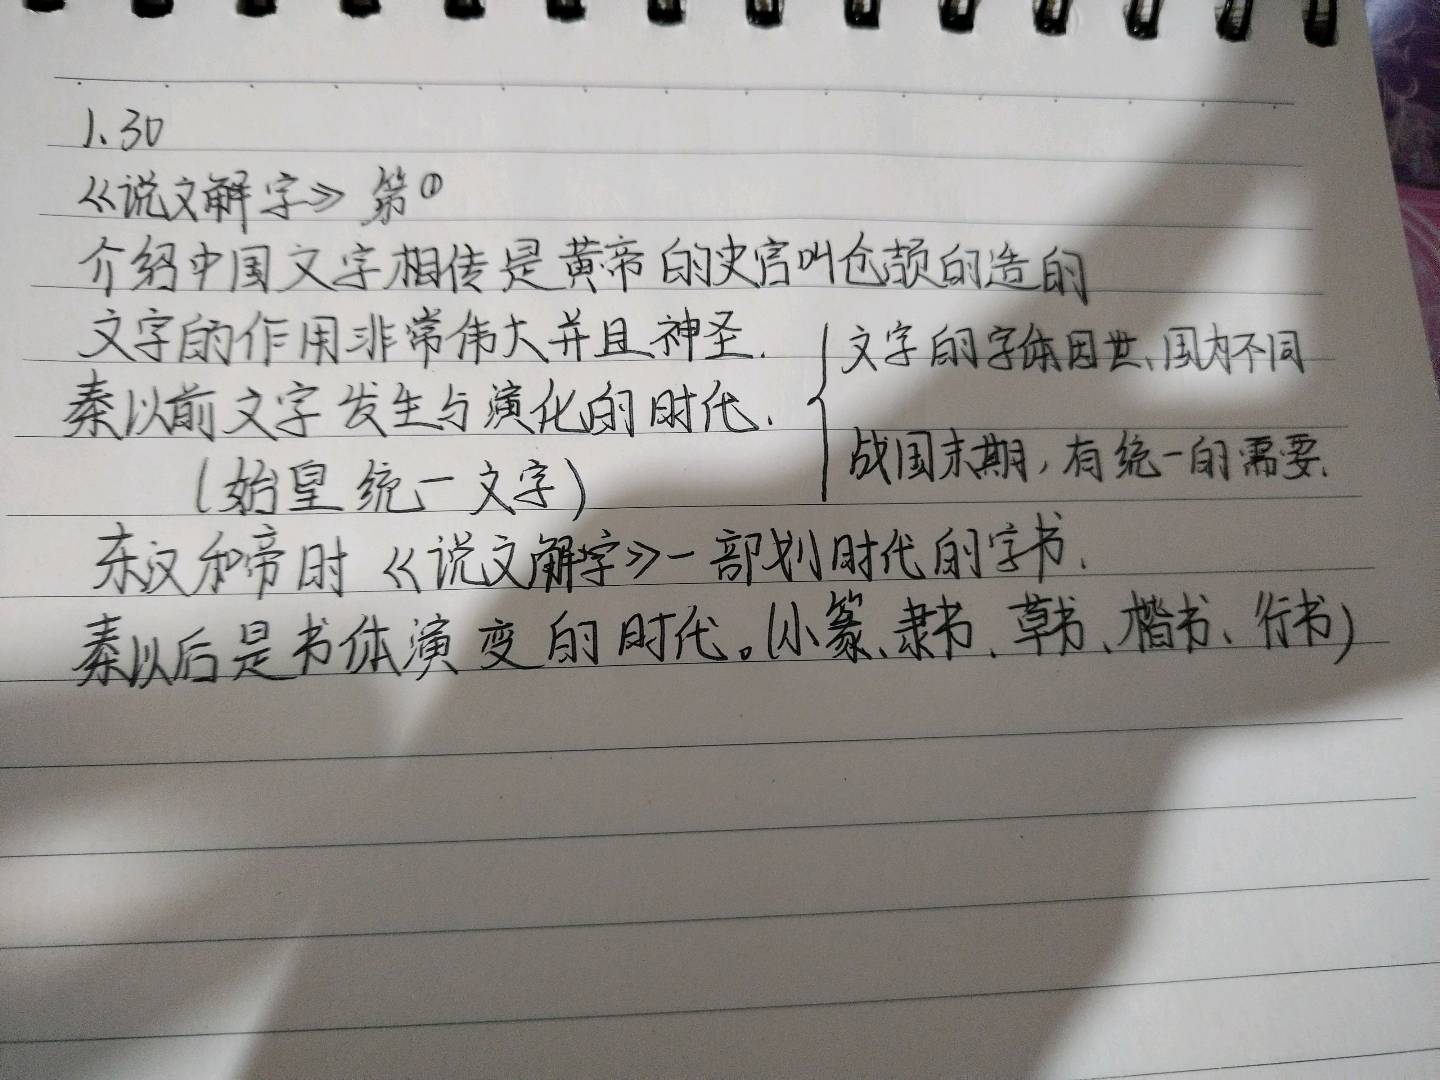 1.30
《说文解字》第①
介绍中国文字相传是黄帝的史官叫仓颉的造的
文字的作用非常伟大并且神圣.
秦以前文字发生与演化的时代.
{文字的字体因世、国内不同
战国末期,有统一的需要.
(始皇统一文字)
东汉和帝时《说文解字》一部划时代的字书.
秦以后是书体演变的时代。(小篆、隶书、草书、楷书、行书)